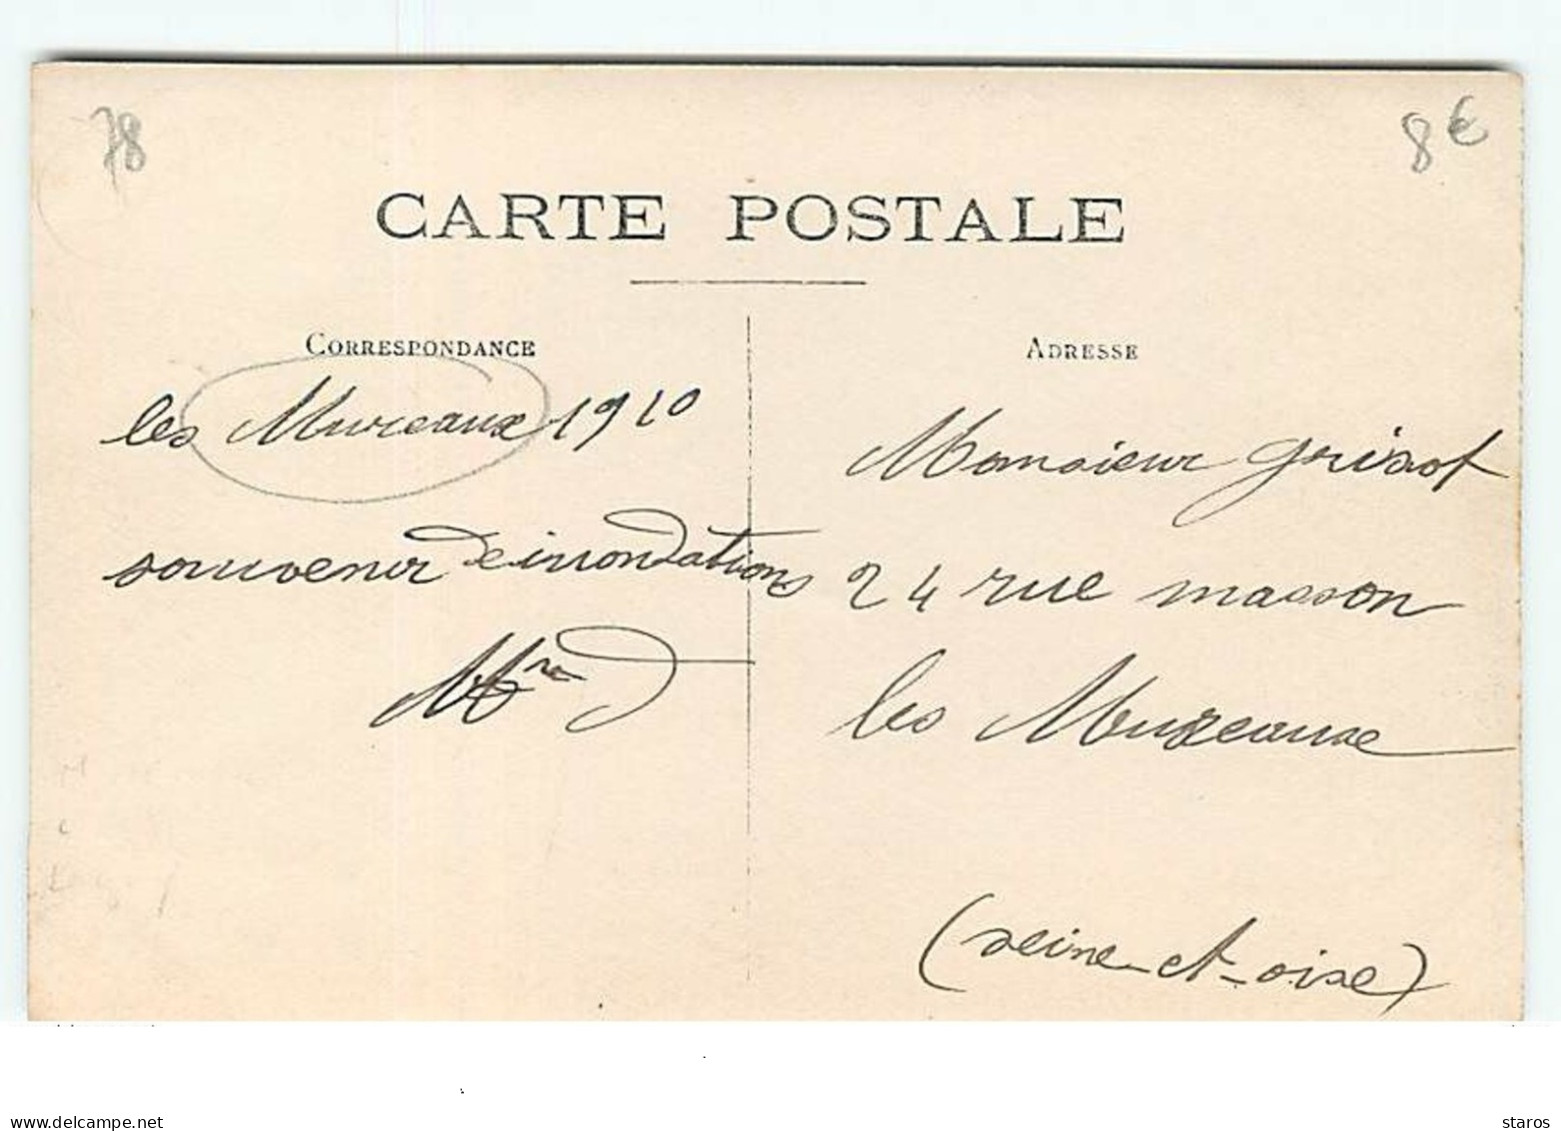 78
8 €
CARTE POSTALE
CORRESPONDANCE
les Mureaux 1910
souvenir de inondations
ADRESSE
Monsieur grisot
24 rue masson
les Mureaux
(seine-et-oise)
delcampe.net
staros